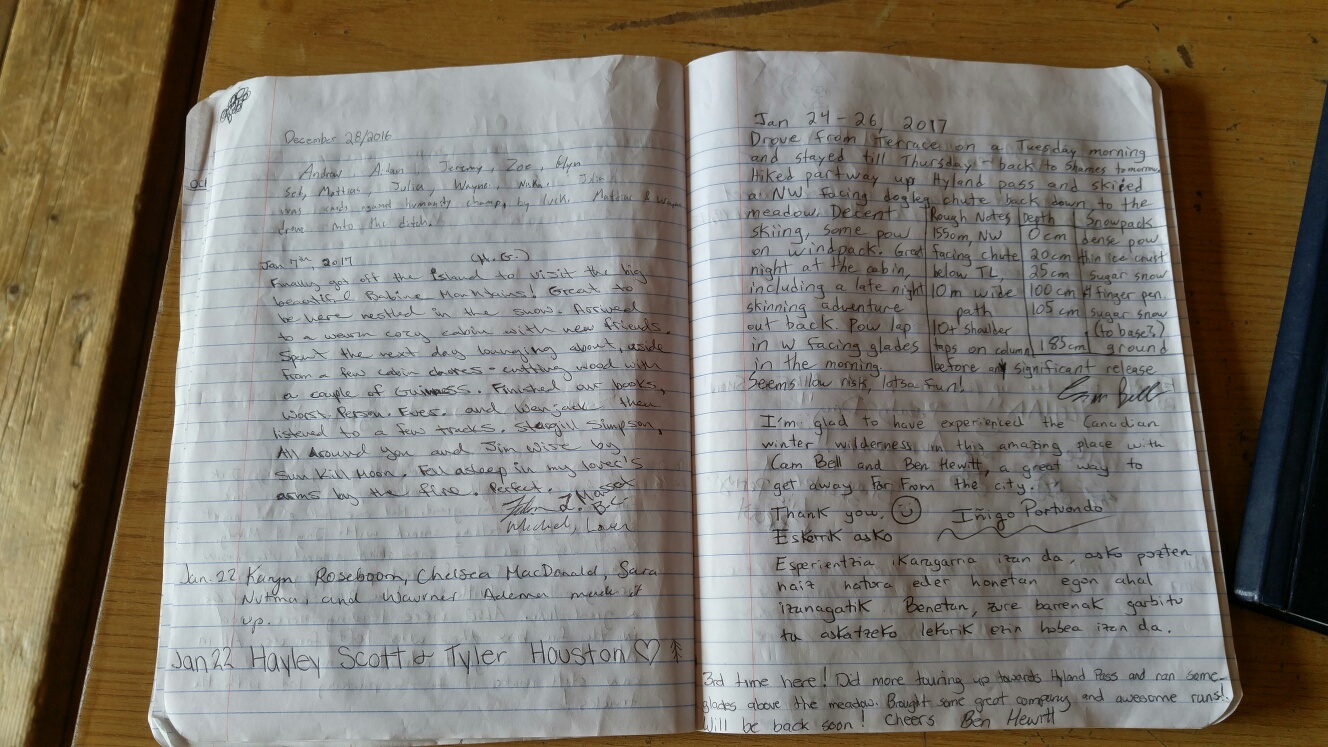 December 28/2016
Andrew, Adam, Jeremy, Zoe, Glyn
Seb, Mattias, Julia, Wayne, Julie
cards against humanity champ, by luck. Mattias & Wayne
drove into the ditch.
Jan 7th, 2017 (H.G.)
Finally got off the Island to visit the big
beautiful Babine Mountains! Great to
be here nestled in the snow. Arrived
to a warm cozy cabin with new friends.
Spent the next day lounging about, aside
from a few cabin chores - cutting wood with
a couple of Guinness. Finished our books,
Worst. Person. Ever. and Wenjack then
listened to a few tracks. Sturgill Simpson,
All Around You and Jim Wise by
Sun Kill Moon. Fell asleep in my lover's
arms by the fire. Perfect.
Masset
BC
Michael, Laura
Jan. 22 Karyn Roseboom, Chelsea MacDonald, Sara
Nutma, and Waurner Adema made it
up.
Jan 22 Hayley Scott & Tyler Houston
Jan 24 - 26, 2017
Drove from Terrace on a Tuesday morning
and stayed till Thursday - back to Shames tomorrow.
Hiked partway up Hyland pass and skiied
a NW facing dogleg chute back down to the
meadow. Decent
skiing, some pow
on windpack. Great
night at the cabin,
including a late night
skinning adventure
out back. Pow lap
in W facing glades
in the morning.
Seems low risk, lotsa fun!
Rough Notes Depth Snowpack
1550m, NW 0cm dense pow
facing chute 20cm thin ice crust
below TL, 25cm sugar snow
10m wide 100cm 4 finger pen.
path 105cm sugar snow
10+ shoulder (to base?)
taps on column 185cm ground
before any significant release
Cam Bell
I'm glad to have experienced the Canadian
winter wilderness in this amazing place with
Cam Bell and Ben Hewitt, a great way to
get away far from the city.
Thank you. Iñigo Portuondo
Eskerrik asko
Esperientzia ikaragarria izan da, asko pozten
naiz natura eder honetan egon ahal
izanagatik Benetan, zure barrenak garbitu
ta askatzeko lekurik ezin hobea izan da.
3rd time here! Did more touring up towards Hyland Pass and ran some
glades above the meadow. Brought some great company and awesome runs!
Will be back soon! Cheers Ben Hewitt